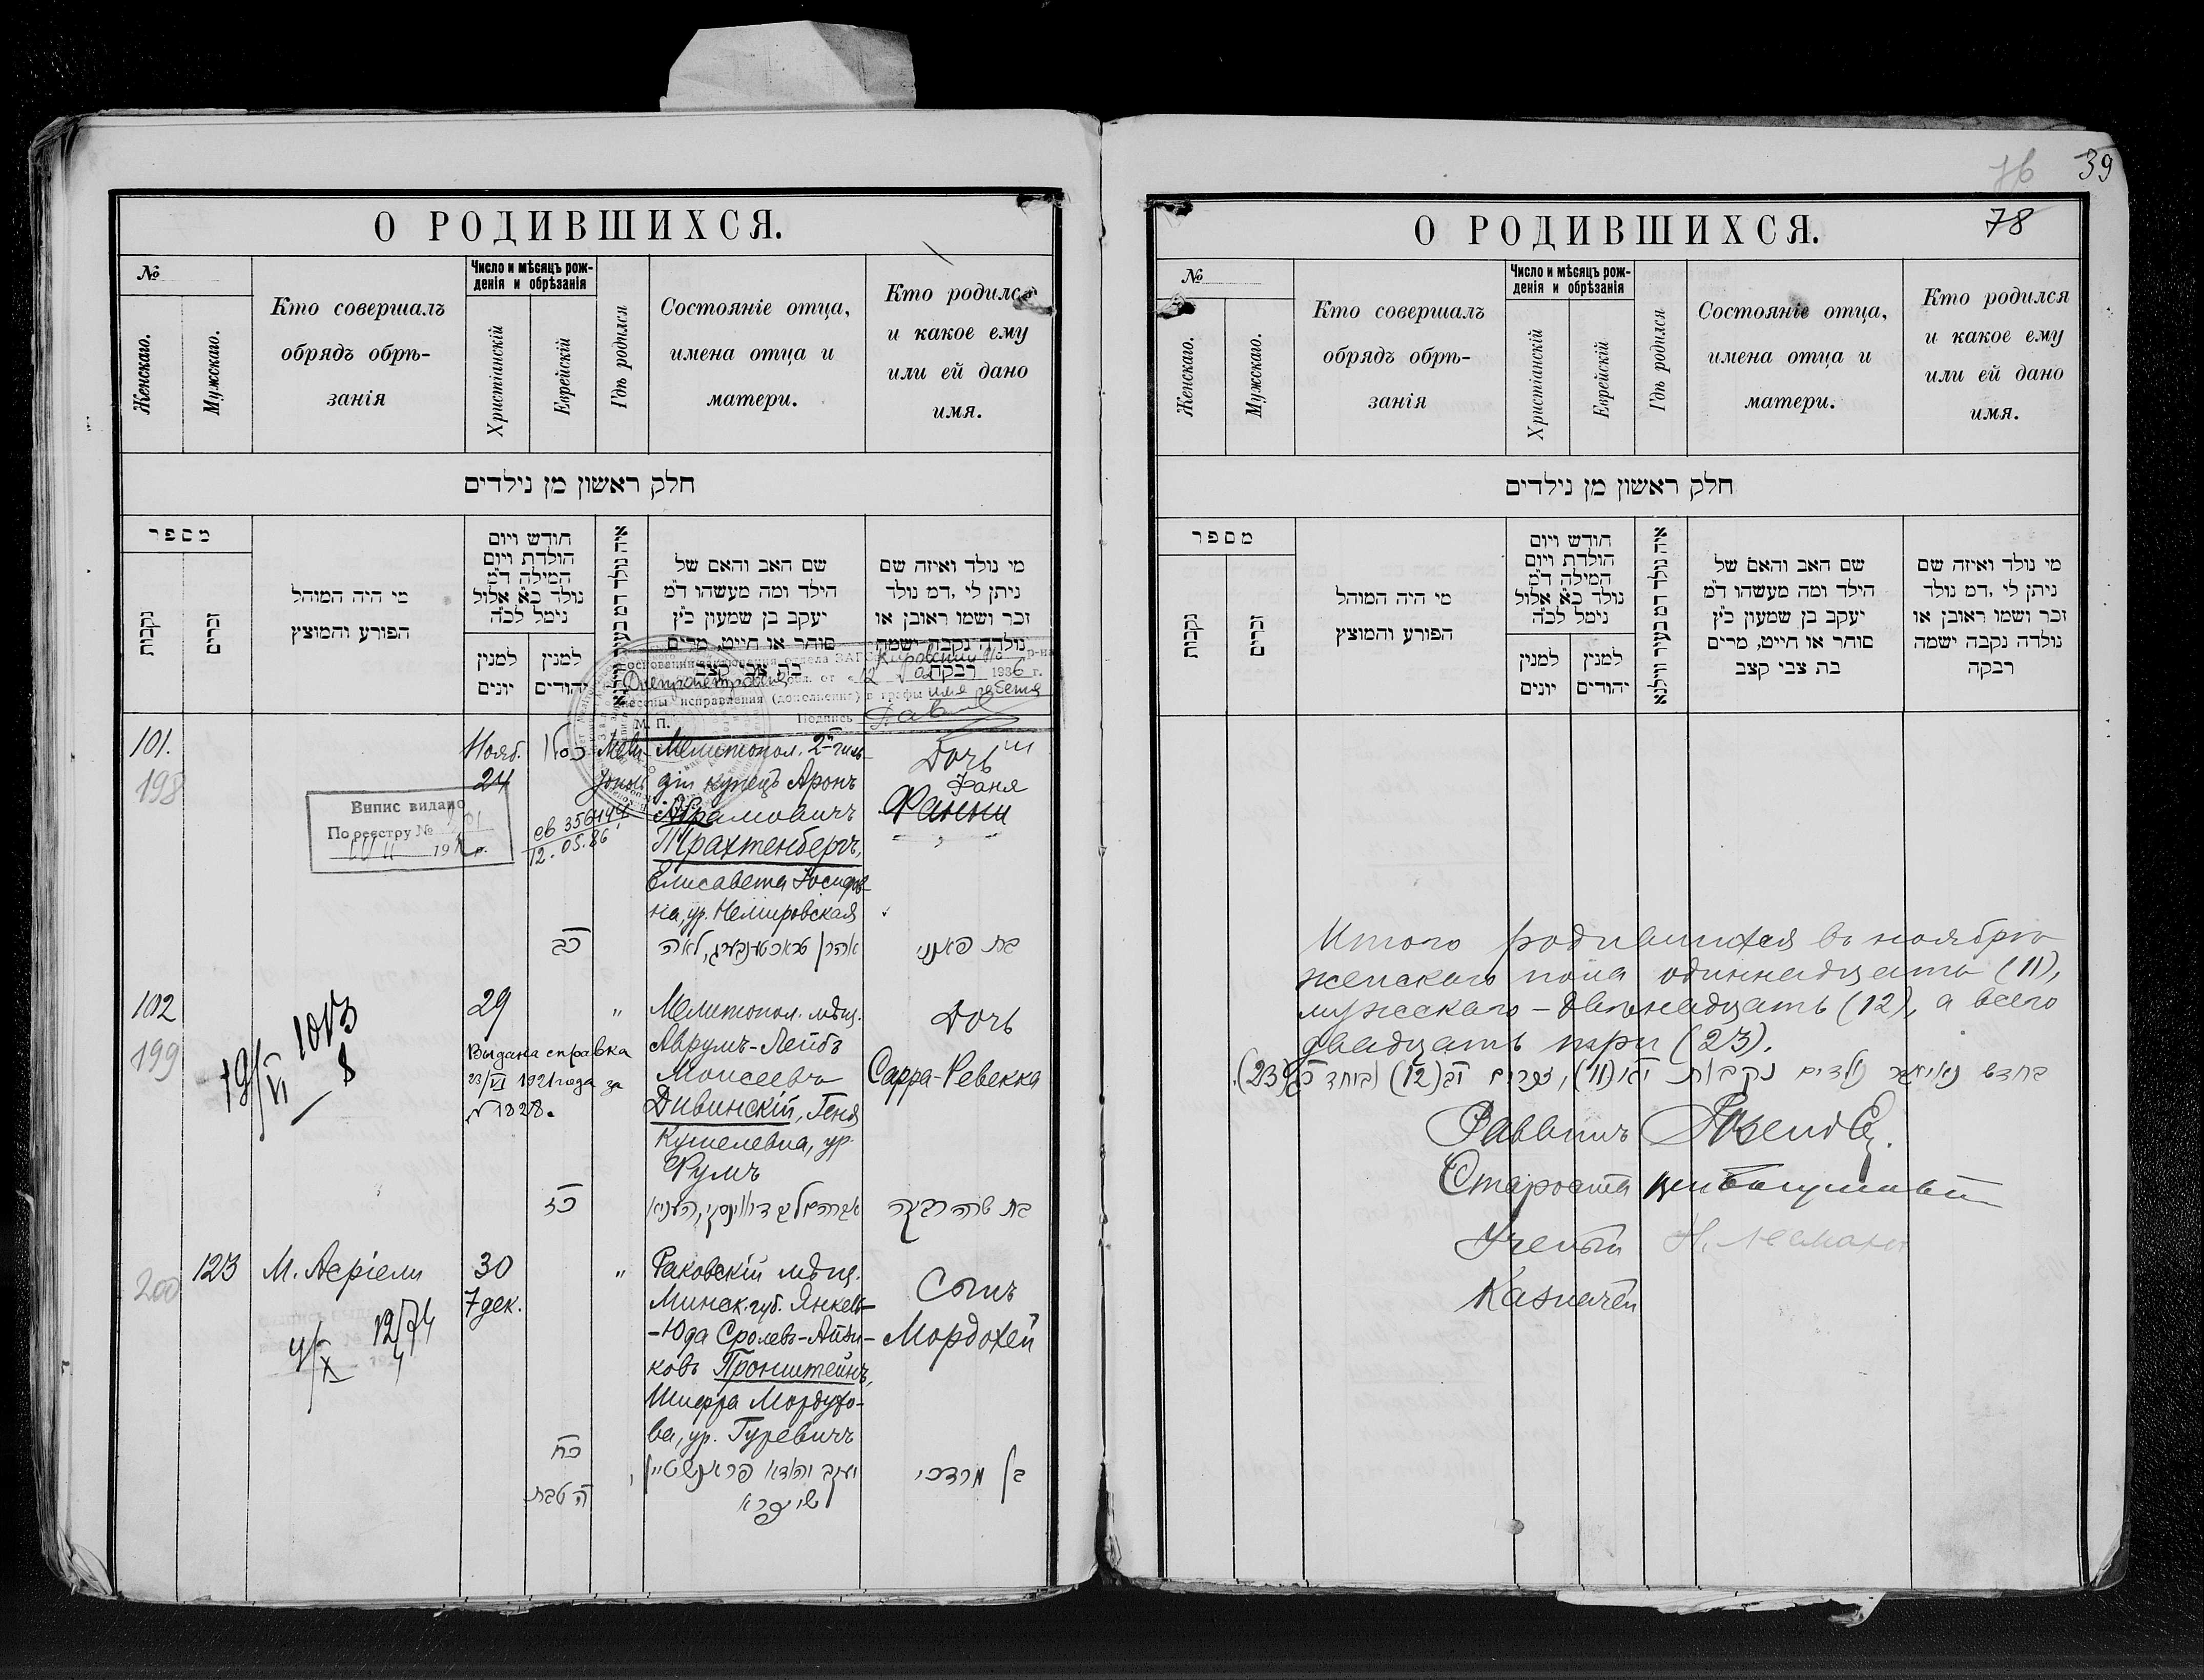 О РОДИВШИХСЯ.
№
Женскаго.
Мужскаго.
Кто совершалъ
обрядъ обрѣ-
занія
Число и мѣсяцъ рож-
денія и обрѣзанія
Христіанскій
Еврейскій
Гдѣ родился
Состояніе отца,
имена отца и
матери.
Кто родился
и какое ему
или ей дано
имя.
חלק ראשון מן נילדים
מספר
נקבות
זכרים
מי היה המוהל
הפורע והמוצץ
חודש ויום
הולדת ויום
המילה ד״מ
נולד כ״א אלול
נימל לכ״ה
למנין
יונים
למנין
יהודים
איה נולד דמ בעיר ווילנא
שם האב והאם של
הילד ומה מעשהו ד״מ
יעקב בן שמעון כ״ץ
סוחר או חייט, מרים
בת צבי קצב
מי נולד ואיזה שם
ניתן לי, דמ נולד
זכר ושמו ראובן או
נולדה נקבה ישמה
רבקה
обл. от 12 1986 г.
исправления (дополнение) в графы имя ребенка
М. П. Подпись
101.
198
Нояб.
24
כסלו
Мелитопол. 2-й гиль-
діи купецъ Аронъ
Абрамовичъ
Трахтенбергъ,
Елисавета Іосифов-
на, ур. Немировская
Дочь
Фаня
Фанни
Випис видано
По реестру №
12.05.86
כב
אהרן טראכטענבערג, לאה
בת פאנני
102
199
19/VI 1013
8
29
"
Выдана справка
23/VI 1921 года за
№ 1828.
Мелитопол. мѣщ.
Аврумъ-Лейбъ
Моисеевъ
Дивинскій, Геня
Кушелевна, ур.
Румъ
Дочь
Сарра-Ревекка
כז
אברהם ליב דיווינסקי, העניא
בת שרה רבקה
200
123
М. Асріели
4/X 1274
30
7 дек.
"
Раковскій мѣщ.
Минск. губ. Янкель-
-Юда Сролевъ-Айзи-
ковъ Пронштейнъ,
Шифра Мордухо-
ва, ур. Гуревичъ
Сынъ
Мордохей
כח
ה טבת
יעקב יהודא פראנשטיין,
שיפרא
בן מרדכי
39
76
78
О РОДИВШИХСЯ.
№
Женскаго.
Мужскаго.
Кто совершалъ
обрядъ обрѣ-
занія
Число и мѣсяцъ рож-
денія и обрѣзанія
Христіанскій
Еврейскій
Гдѣ родился
Состояніе отца,
имена отца и
матери.
Кто родился
и какое ему
или ей дано
имя.
חלק ראשון מן נילדים
מספר
נקבות
זכרים
מי היה המוהל
הפורע והמוצץ
חודש ויום
הולדת ויום
המילה ד״מ
נולד כ״א אלול
נימל לכ״ה
למנין
יונים
למנין
יהודים
איה נולד דמ בעיר ווילנא
שם האב והאם של
הילד ומה מעשהו ד״מ
יעקב בן שמעון כ״ץ
סוחר או חייט, מרים
בת צבי קצב
מי נולד ואיזה שם
ניתן לי, דמ נולד
זכר ושמו ראובן או
נולדה נקבה ישמה
רבקה
Итого родившихся въ ноябрѣ
женскаго пола одиннадцать (11),
мужскаго – двѣнадцать (12), а всего
двадцать три (23).
בחדש נאיאבר נולדים נקבות יא (11), זכרים יב (12) וביחד כג (23).
Раввинъ
Староста
Ученый
Казначей